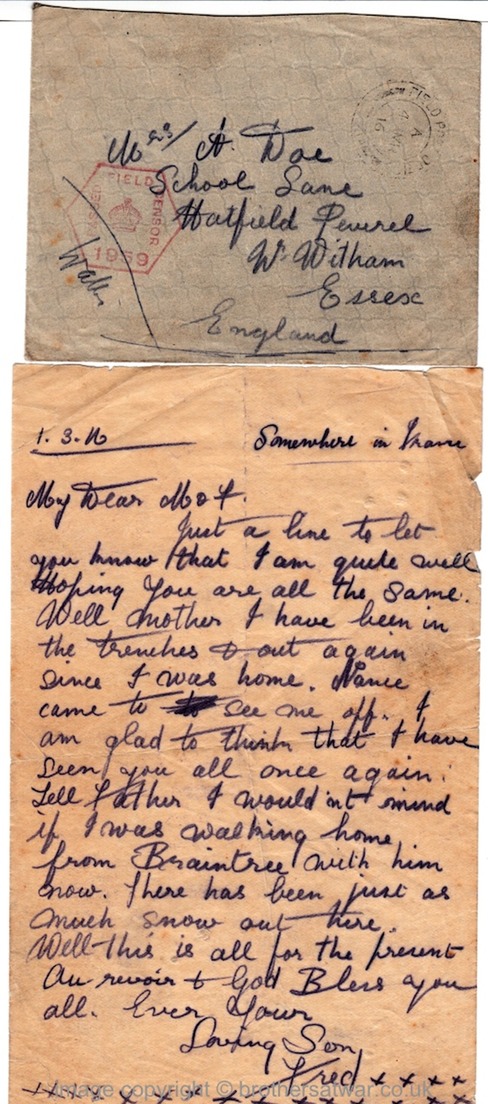 Mrs/ A. Doe
School Lane
Hatfield Peverel
Nr Witham
Essex
England
PASSED FIELD CENSOR
1959
FIELD PO
1.3.16
Somewhere in France
My Dear M & F.
Just a line to let
you know that I am quite well
Hoping you are all the same.
Well mother I have been in
the trenches & out again
since I was home. Nance
came to see me off. I
am glad to think that I have
seen you all once again.
Tell Father I would'nt mind
if I was walking home
from Braintree with him
now. There has been just as
much snow out here.
Well this is all for the present
Au revoir & God Bless you
all. Ever Your
Loving Son
Fred x x x x
Image copyright © brothersatwar.co.uk